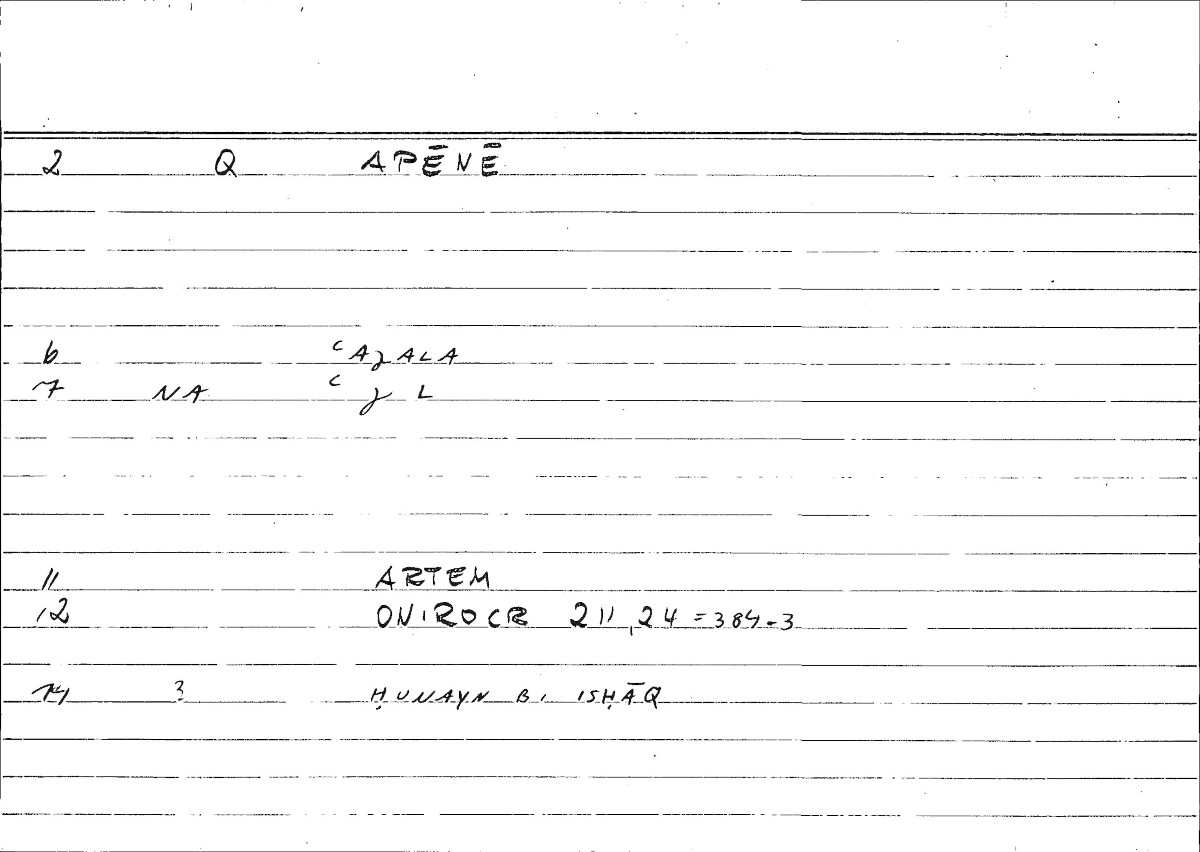 2 Q APĒNĒ
6 ʿAʒALA
7 NA ʿ ʒ L
11 ARTEM
12 ONIROCR 211,24 = 384-3
14 3 ḤUNAYN B. ISḤĀQ